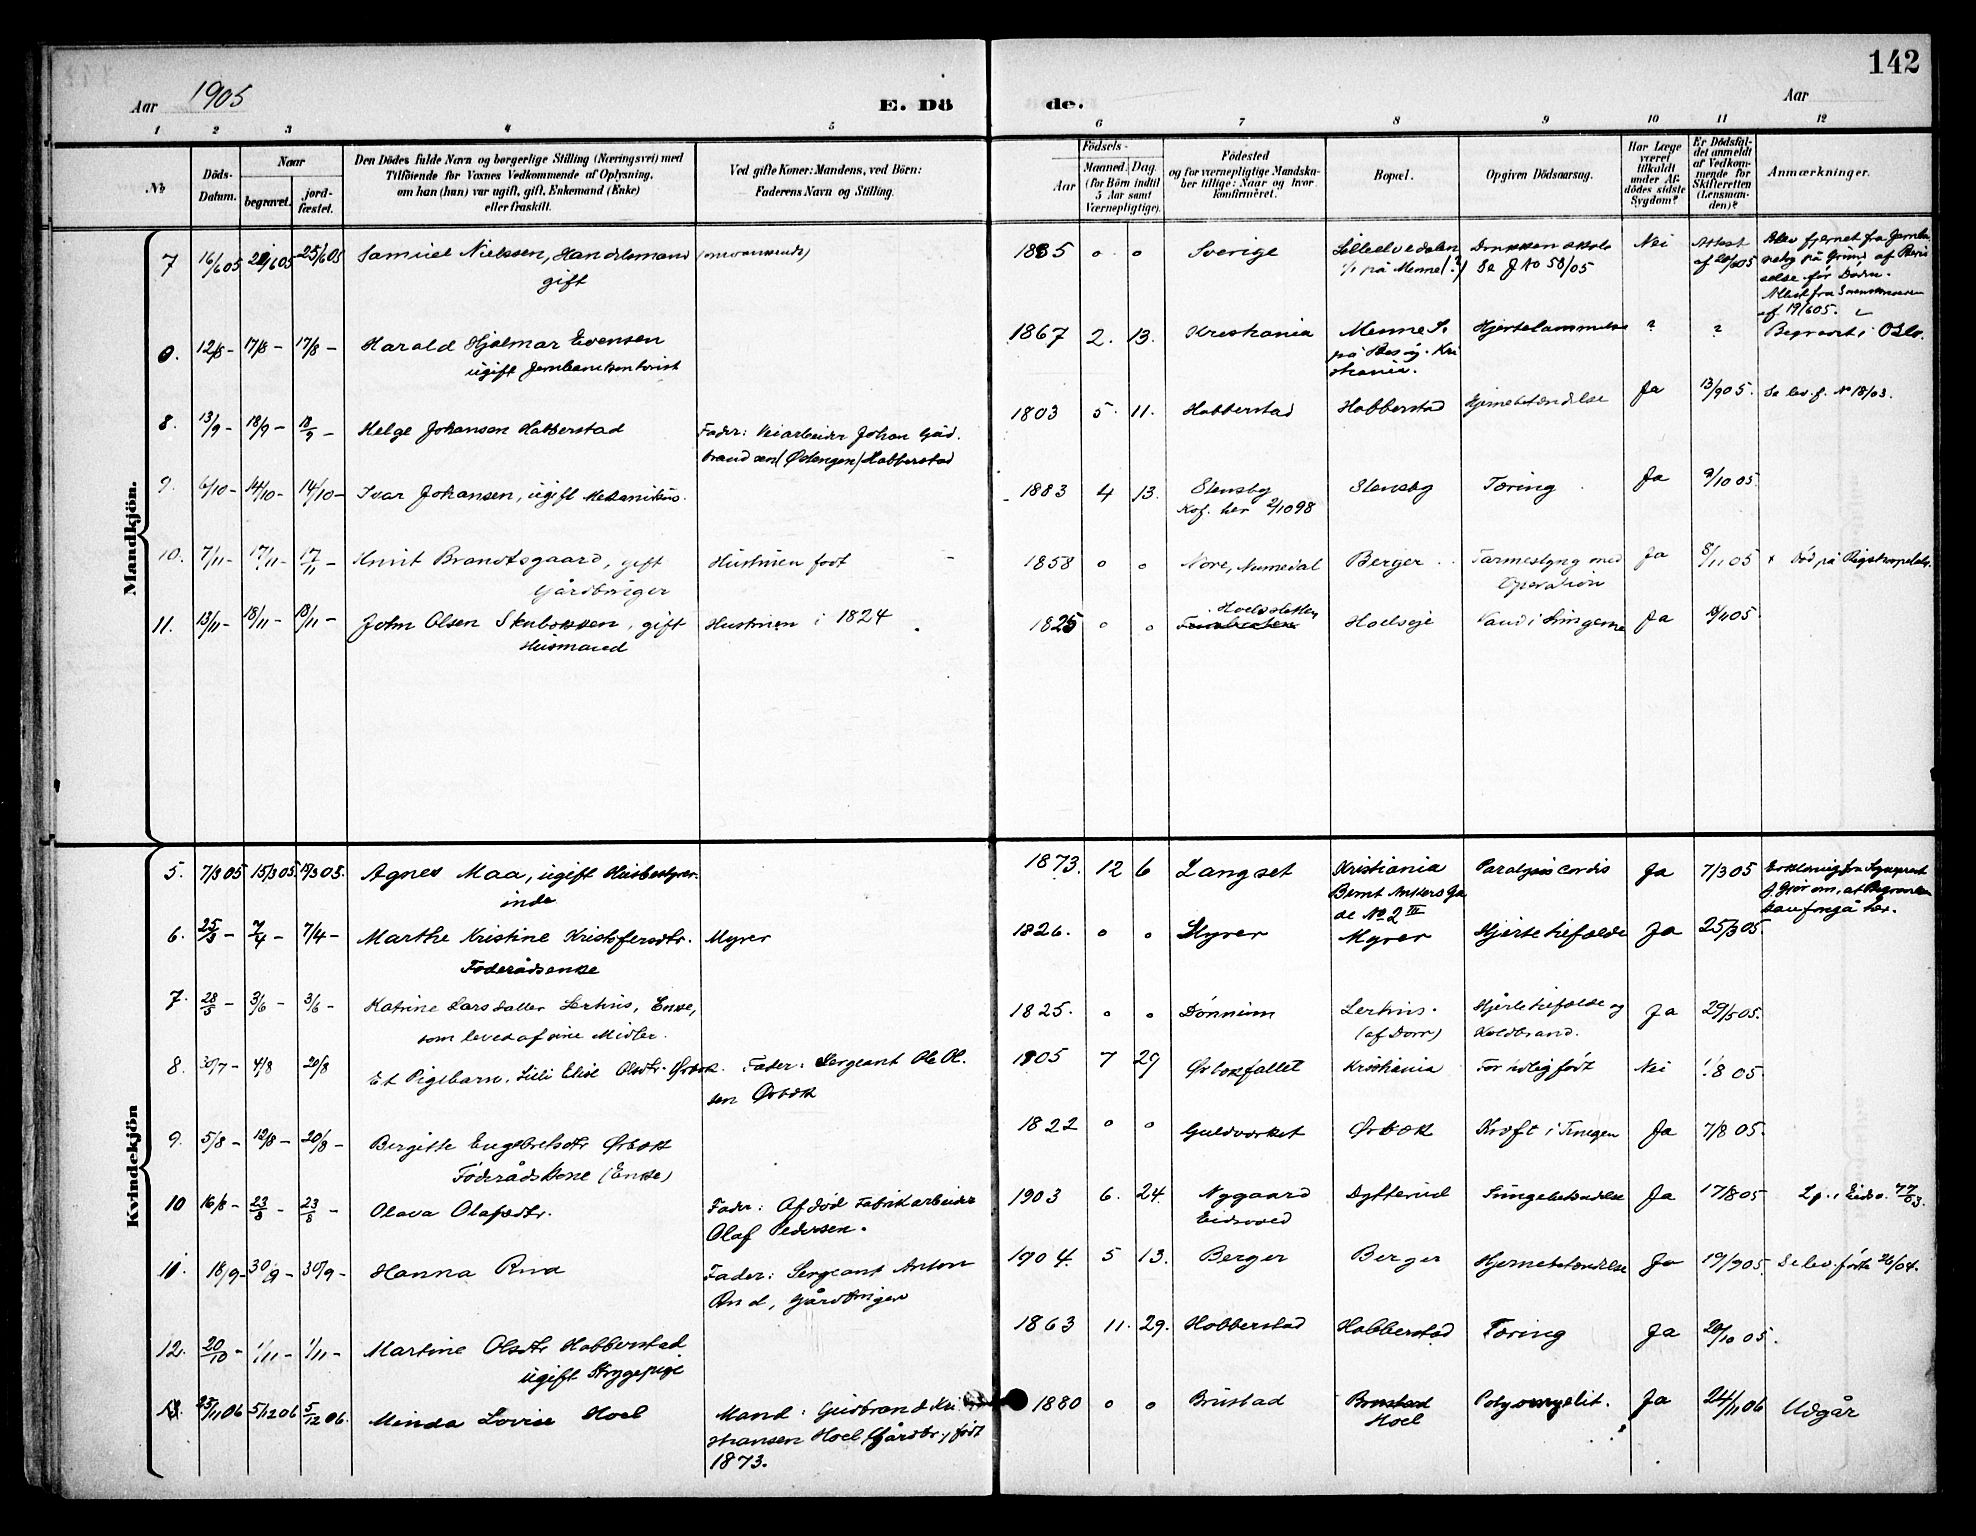 142
Aar 1905
E. Dö
de.
Aar
1 2 3 4 5 6 7 8 9 10 11 12
No
Döds-
Datum.
Naar
begravet.
jord-
fæstet.
Den Dödes fulde Navn og borgerlige Stilling (Næringsvei) med
Tilföiende for Voxnes Vedkommende af Oplysning,
om han (hun) var ugift, gift, Enkemand (Enke)
eller fraskilt.
Ved gifte Koner: Mandens, ved Börn:
Faderens Navn og Stilling.
Födsels-
Aar
Maaned. Dag.
(for Börn indtil
5 Aar samt
Værnepligtige).
Födested
og for værnepligtige Mandska-
ber tillige: Naar og hvor
konfirmeret.
Bopæl.
Opgiven Dödsaarsag.
Har Læge
været
tilkaldt
under Af-
dödes sidste
Sygdom?
Er Dödsfal-
det anmeldt
af Vedkom-
mende for
Skifteretten
(Lensman-
den)?
Anmærkninger.
Mandkjön.
7 16/6 05 25/6 05 Samuel Nielssen, Handelsmand (omvankende) 1835 o o Sverige Lilleelvedalen Drukken Nei Attest
gift
på Menne (?) Se J No 58/05
Blev fjernet fra Jernba
på Grund af
før Døden.
af 19/6 05.
0. 12/8 - 17/8 - 17/8 - Harald Hjalmar Evensen 1867 2. 13. Kristiania Hjertelammelse ? ? Begravet i Oslo.
ugift
på Besøg. Kri
stiania.
8. 13/9 - 18/9 - 18/9 - Helge Johansen Habberstad Fader: Veiarbeider Johan Gud. 1903 5. 11. Habberstad Habberstad Hjernebetændelse Ja 13/9 05. Se lev. f. No 18/03.
brandsen (Østengen) Habberstad
9. 6/10 - 14/10 - 14/10 - Ivar Johansen, ugift Mekanikus. 1883 4 13. Stensby Stensby Tæring Ja 9/10 05
Kof. her 2/10 98
10. 7/11 - 17/11 - 17/11 - Knut Brandtsgaard, gift Hustruen født - 1858 o o Nore, Numedal Berger Tarmeslyng med Ja 8/11 05 x Død på Rigshospitalet.
Gårdbruger
Operation
11. 13/11 - 18/11 - 18/11 - John Olsen Skubakken, gift Hustruen i 1824 1825 o o Hoelseje Vand i Lungerne Ja
Husmand
Kvindekjön
5. 7/3 05 15/3 05 19/3 05. Agnes Maa, ugift Husbestyrer- 1873. 12 6 Langset Kristiania Paralysis cordis Ja 7/3 05
inde
Bernt Ankers Ga
de No 2 III
Erklæring fra Sogneprest
gjør om, at Begravelsen
kan foregå her.
6. 25/3 - 7/4 - 7/4 - Marthe Kristine Kristofersdtr. Myrer 1826. o o Myrer Myrer Hjertetilfælde Ja 25/3 05
Føderådsenke
7. 28/5 - 3/6 - 3/6 - Katrine Larsdatter Lerhus, Enke, 1825. o o Dønnum Lerhus. Hjertetilfælde og Ja 29/5 05.
som levet af sine Midler.
(af Dorr) Koldbrand.
8. 30/7 - 4/8 20/8 Et Pigebarn, Lilli Elise Olsdtr. Ørbæk. Fader: Sergeant Ole Ol. 1905 7 29 Ørbækfallet Kristiania For tidlig født Nei 1/8 05
sen Ørbæk
9. 5/8 - 12/8 - 20/8 - Bergitte Engebretsdtr Ørbæk 1822 o o Guldværket Ørbæk Kræft i Tungen Ja 7/8 05.
Føderådskone (Enke)
10 16/8 - 23/8 - 23/8 - Olava Olafsdtr. Fader: Afdød Fabrikarbeider 1903 6. 24. Nygaard Dytterud Lungebetændelse Ja 17/8 05
Olaf Pedersen. Eidsvold
11. 18/9 - 30/9 - 30/9 - Hanna Rud Fader: Sergeant Anton 1904. 5 13. Berger Berger Hjernebetændelse Ja 19/9 05 Se lev. fødte 26/04.
Rud, Gårdbruger
12. 20/10 - 1/11 - 1/11 - Martine Olsdtr Habberstad 1863 11. 29. Habberstad Habberstad Tæring Ja 20/10 05.
ugift Strygepige
13. 23/11 06 5/12 06 5/12 06. Minda Lovise Hoel Mand: Gudbrand Kri 1880 o o Brustad Brustad Polyomyelit. Ja 24/11 06 Udgår
Hoel
stiansen Hoel Gårdbr., født
1873.